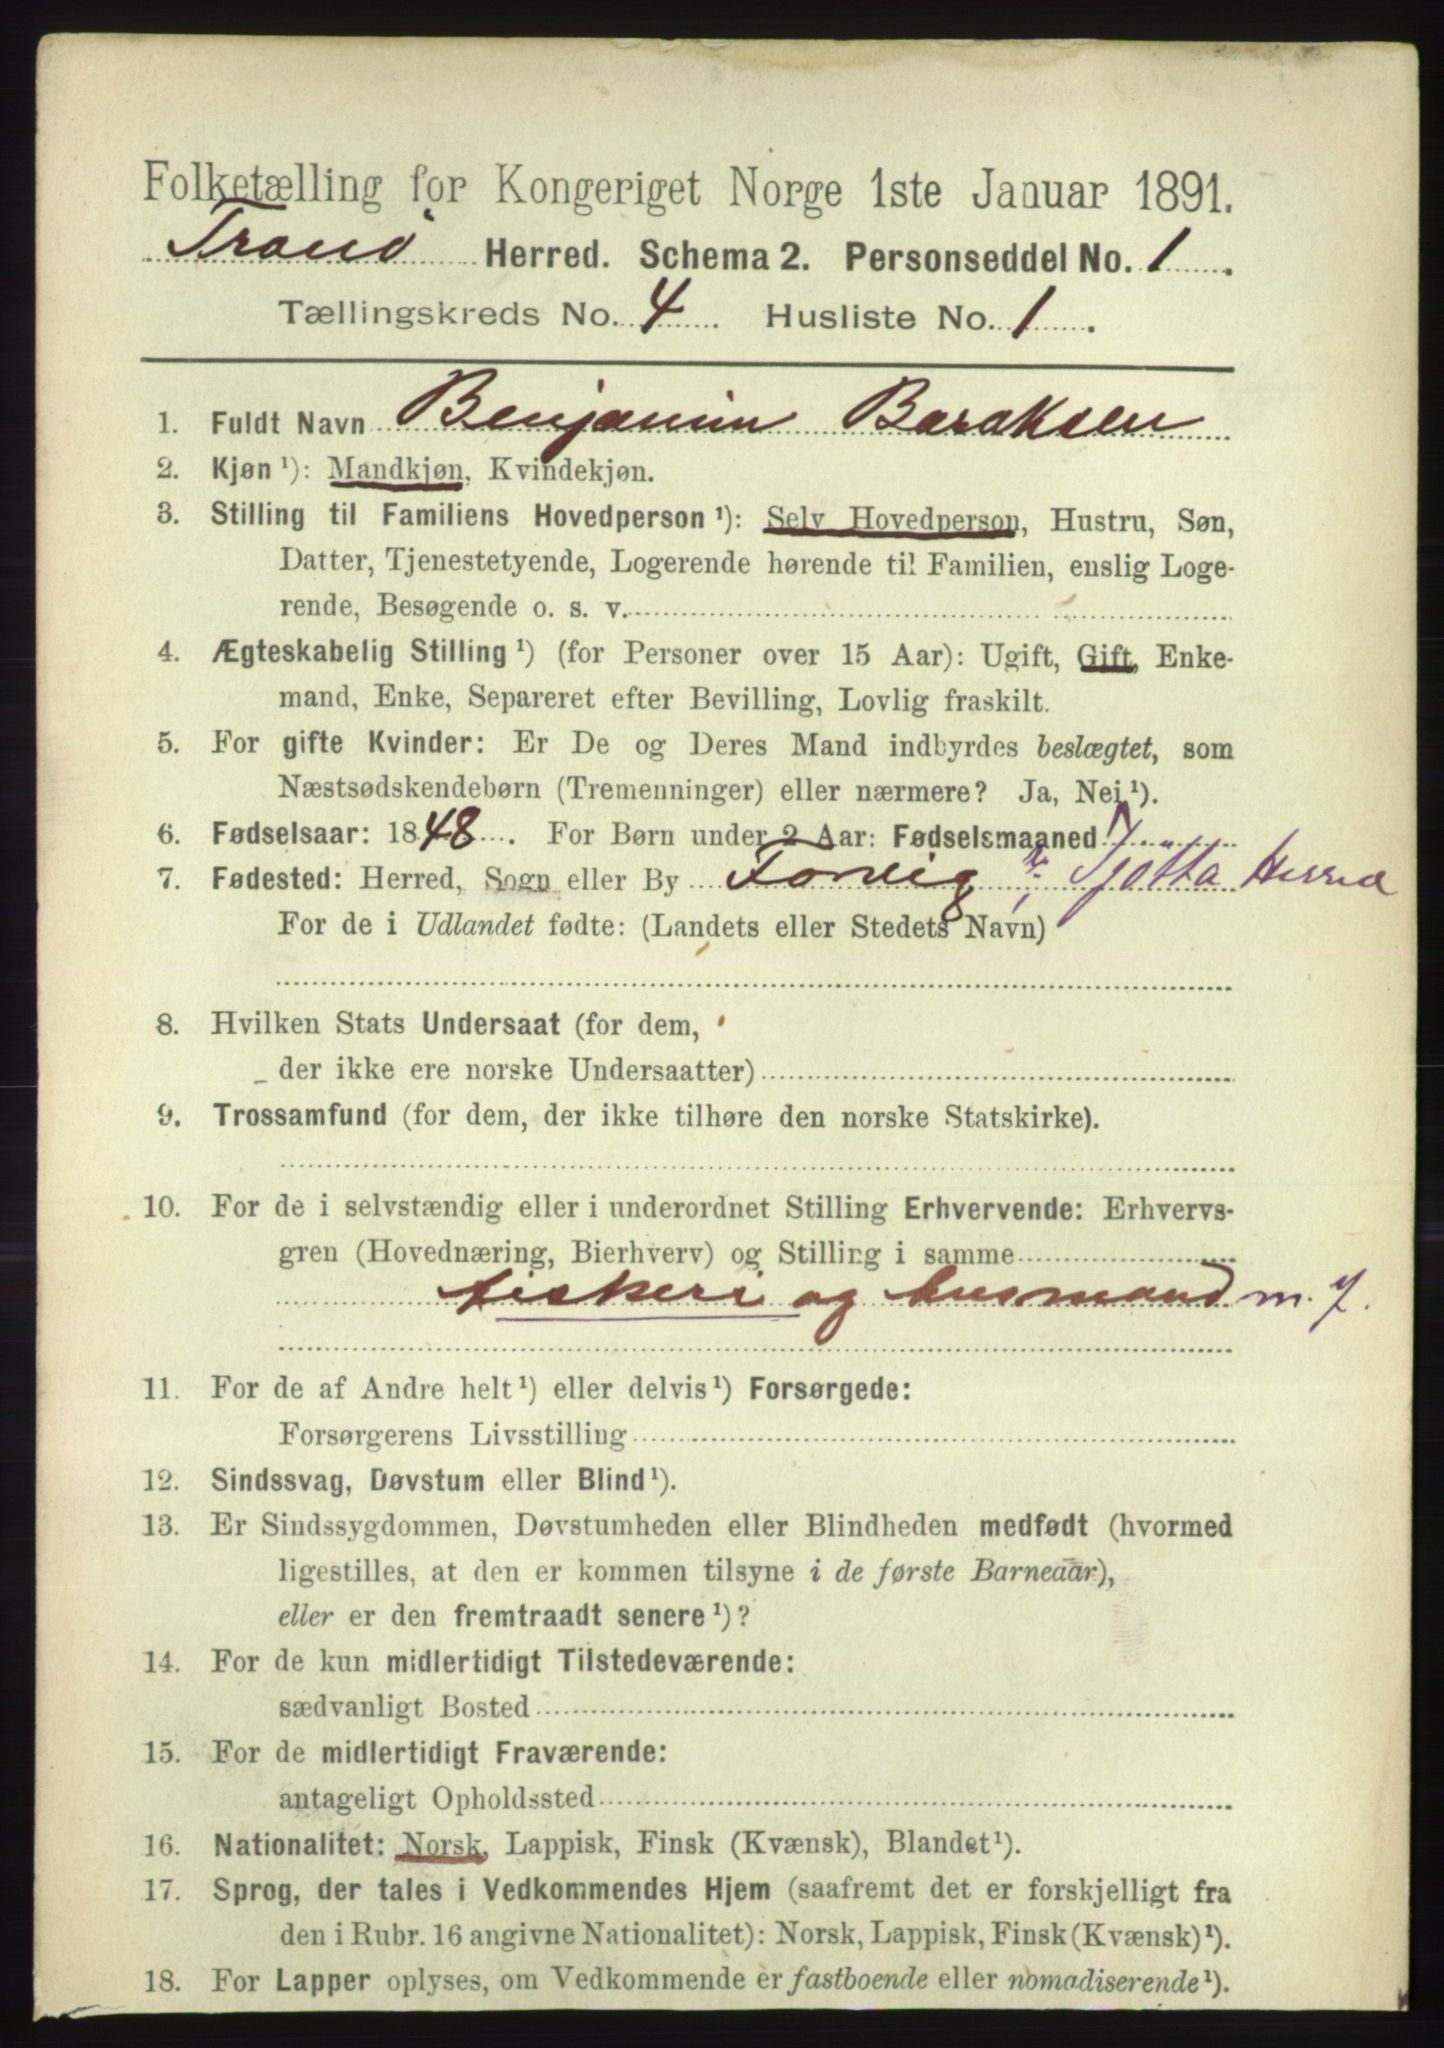 Folketælling for Kongeriget Norge 1ste Januar 1891.
Tranø Herred. Schema 2. Personseddel No. 1
Tællingskreds No. 4 Husliste No. 1
1. Fuldt Navn Benjamin Baraksen
2. Kjøn ¹): Mandkjøn, Kvindekjøn.
3. Stilling til Familiens Hovedperson ¹): Selv Hovedperson, Hustru, Søn,
Datter, Tjenestetyende, Logerende hørende til Familien, enslig Loge-
rende, Besøgende o. s. v.
4. Ægteskabelig Stilling ¹) (for Personer over 15 Aar): Ugift, Gift, Enke-
mand, Enke, Separeret efter Bevilling, Lovlig fraskilt.
5. For gifte Kvinder: Er De og Deres Mand indbyrdes beslægtet, som
Næstsødskendebørn (Tremenninger) eller nærmere? Ja, Nei ¹).
6. Fødselsaar: 1848. For Børn under 2 Aar: Fødselsmaaned
7. Fødested: Herred, Sogn eller By Forvig Tjøtta Herred
For de i Udlandet fødte: (Landets eller Stedets Navn)
8. Hvilken Stats Undersaat (for dem,
der ikke ere norske Undersaatter)
9. Trossamfund (for dem, der ikke tilhøre den norske Statskirke).
10. For de i selvstændig eller i underordnet Stilling Erhvervende: Erhvervs-
gren (Hovednæring, Bierhverv) og Stilling i samme
fiskeri og husmand m. J.
11. For de af Andre helt ¹) eller delvis ¹) Forsørgede:
Forsørgerens Livsstilling
12. Sindssvag, Døvstum eller Blind ¹).
13. Er Sindssygdommen, Døvstumheden eller Blindheden medfødt (hvormed
ligestilles, at den er kommen tilsyne i de første Barneaar),
eller er den fremtraadt senere ¹)?
14. For de kun midlertidigt Tilstedeværende:
sædvanligt Bosted
15. For de midlertidigt Fraværende:
antageligt Opholdssted
16. Nationalitet: Norsk, Lappisk, Finsk (Kvænsk), Blandet ¹).
17. Sprog, der tales i Vedkommendes Hjem (saafremt det er forskjelligt fra
den i Rubr. 16 angivne Nationalitet): Norsk, Lappisk, Finsk (Kvænsk) ¹).
18. For Lapper oplyses, om Vedkommende er fastboende eller nomadiserende ¹).